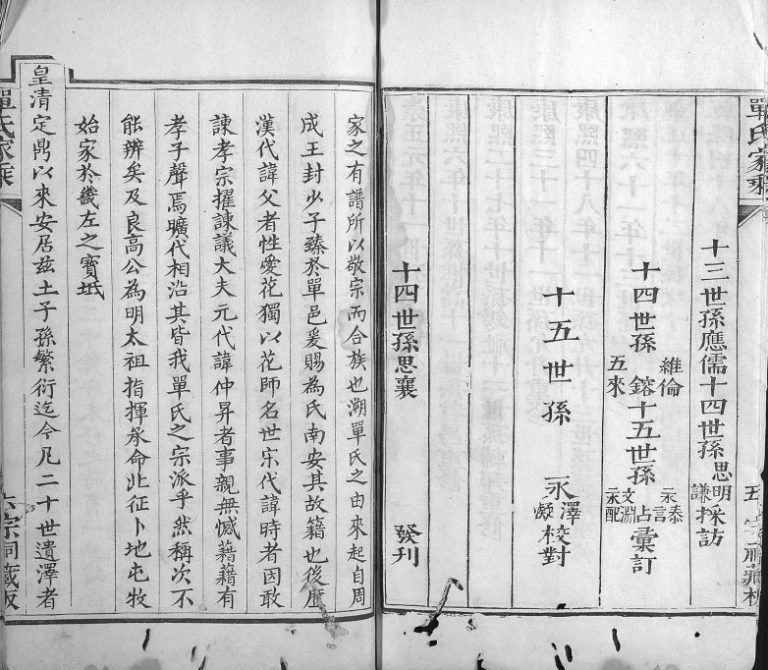 單氏家乘
十三世孫應儒十四世孫思明謙採訪
十四世孫維倫五來鎔十五世孫永泰言占文淵永配彙訂
十五世孫永澤凝校對
十四世孫思襄 發刊
家之有譜所以敬宗而合族也溯單氏之由來起自周
成王封少子臻於單邑爰賜為氏南安其故籍也後歷
漢代諱父者性愛花獨以花師名世宋代諱時者因敢
諫孝宗擢諫議大夫元代諱仲昇者事親無憾藉藉有
孝子聲焉曠代相沿其皆我單氏之宗派乎然稱次不
能辨矣及良高公為明太祖指揮承命北征卜地屯牧
始家於畿左之寶坻
皇清定鼎以來安居茲土子孫繁衍迄今凡二十世遺澤者
單氏家乘
六宗祠藏板